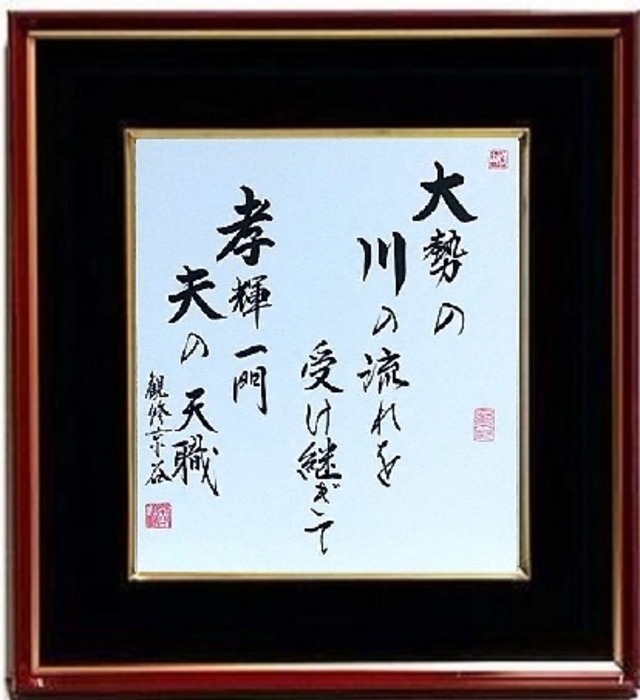 大勢の
川の流れを
受け継ぎて
孝輝一門
夫の天職